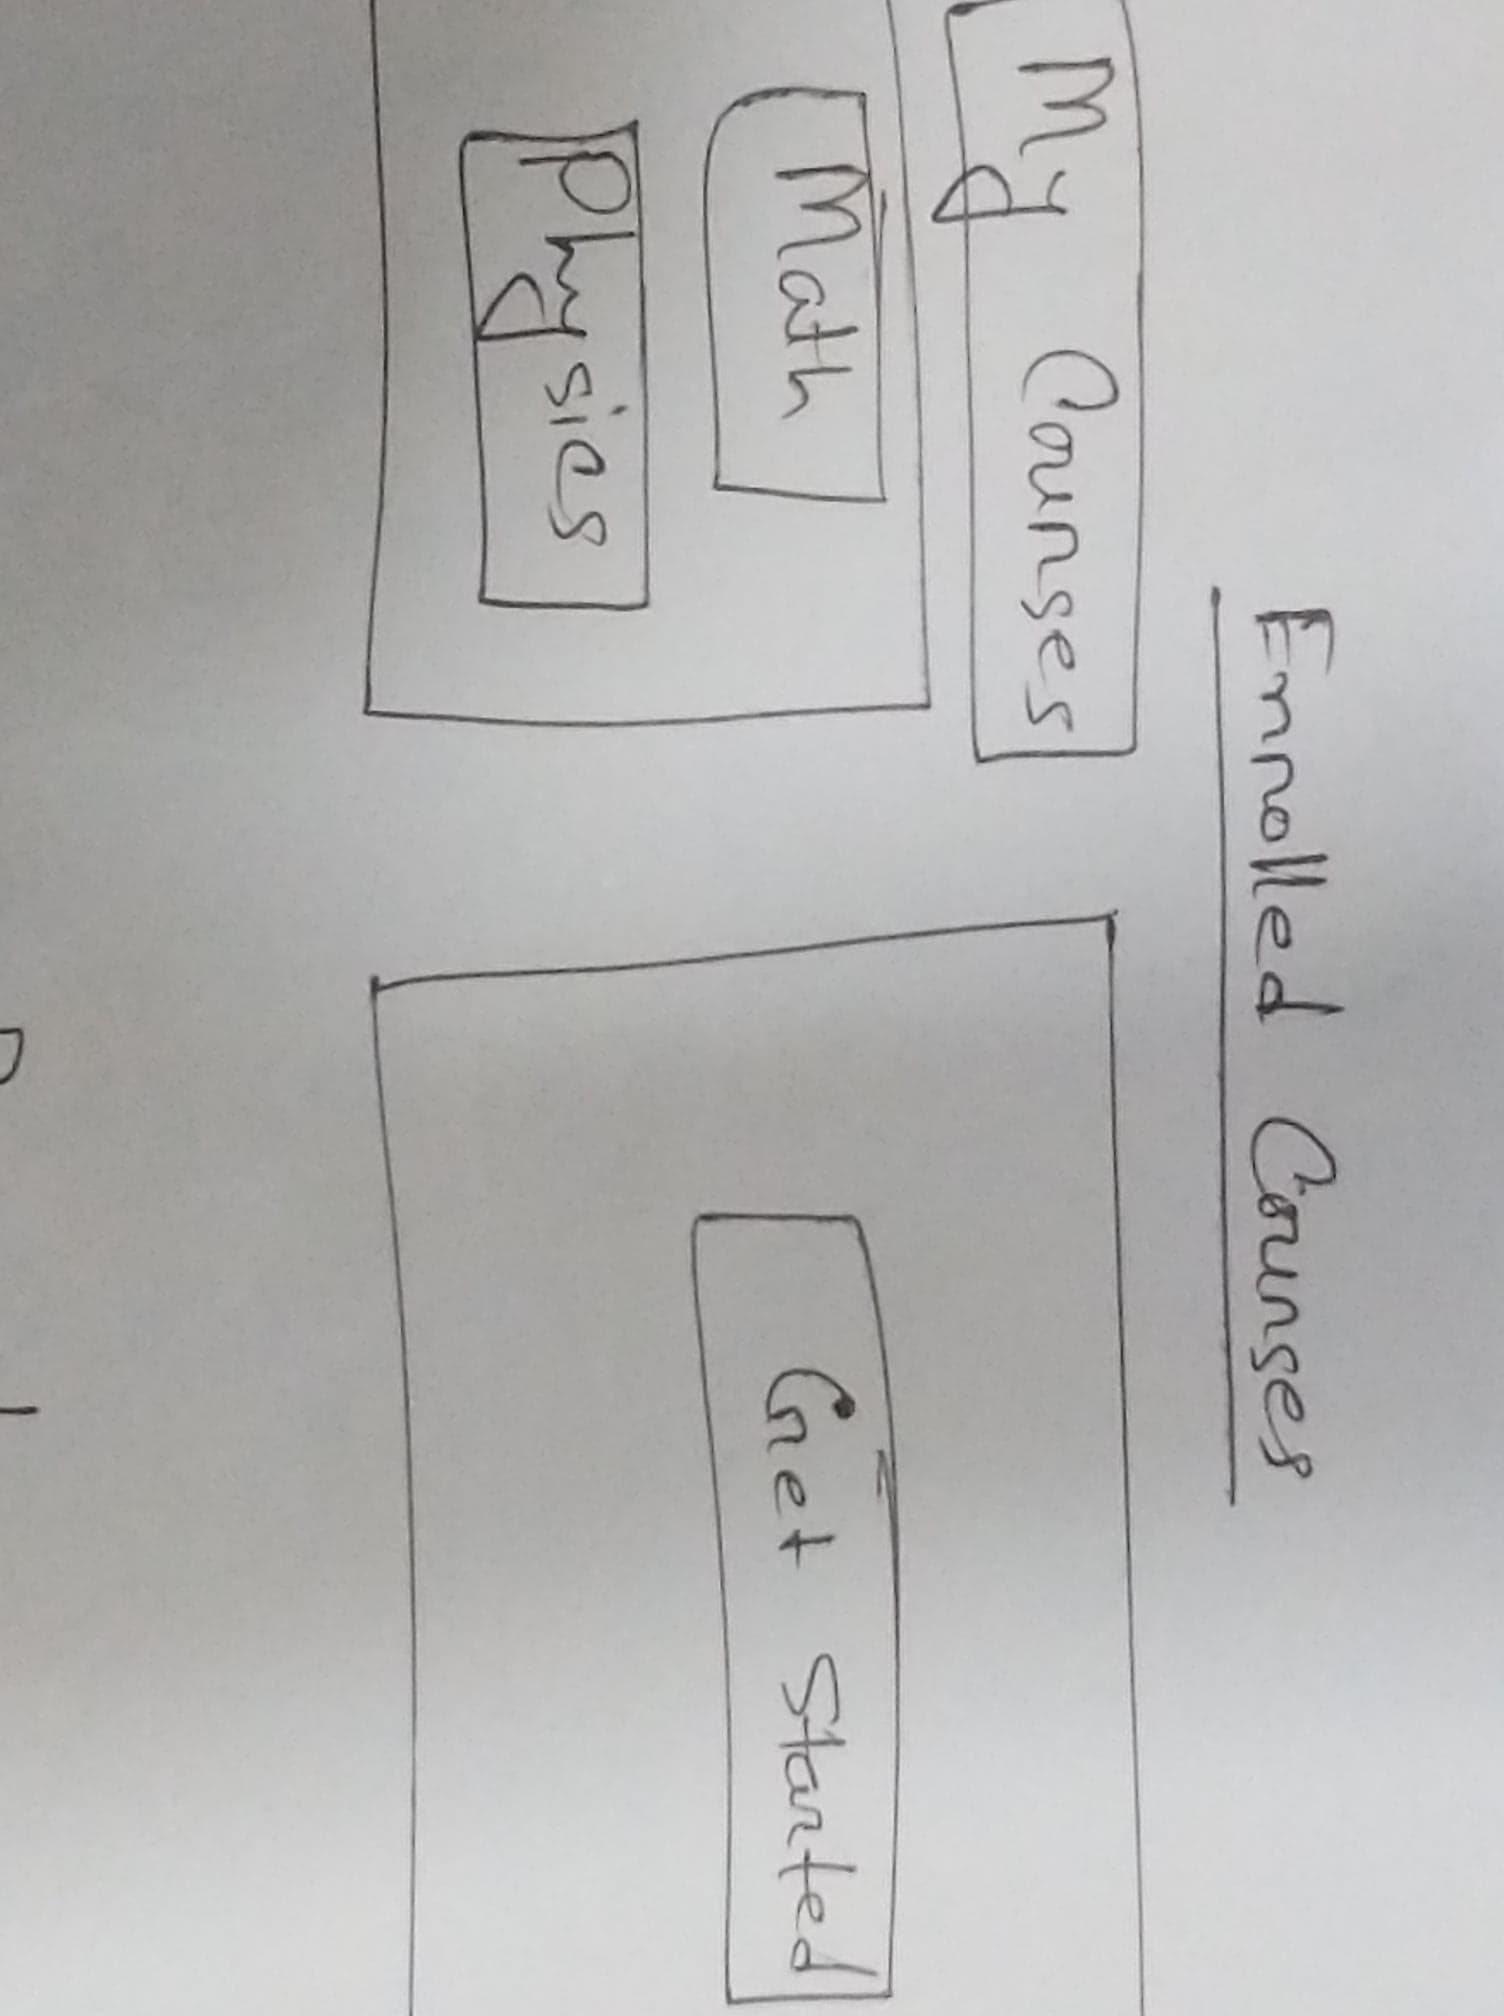 Enrolled Courses
My Courses
Math
Physics
Get Started